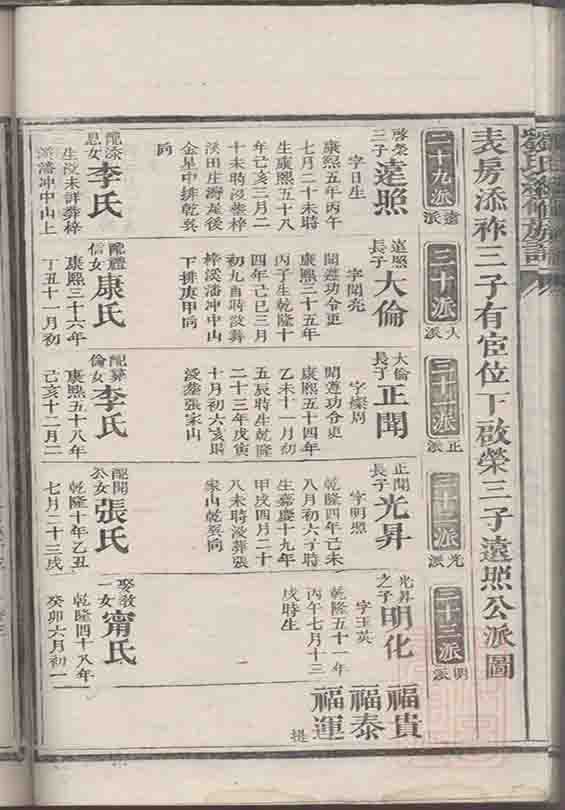 劉氏續修族譜
表房添祚三子有宦位下啟榮三子遠照公派圖
二十九派
遠派
三十派
大派
三十一派
正派
三十二派
光派
三十三派
明派
啓榮
三子
遠照
字日生
康熙五年丙午
七月二十未時
生康熙五十八
年己亥三月二
十未時沒葬梓
溪田庄灣屋後
金星中排乾巽
向
配添
息女
李氏
生沒未詳葬梓
溪潘冲中山上
遠照
長子
大倫
字聞亮
聞遵功令更
康熙三十五年
丙子生乾隆十
四年己巳三月
初九酉時沒葬
梓溪潘冲中山
下排庚甲向
配體
信女
康氏
康熙三十六年
丁丑十一月初
大倫
長子
正聞
字燦周
聞遵功令更
康熙五十四年
乙未十一月初
五辰時生乾隆
二十三年戊寅
十月初六亥時
沒葬張家山
配舜
倫女
李氏
康熙五十八年
己亥十二月二
正聞
長子
光昇
字明照
乾隆四年己未
八月初六子時
生嘉慶十九年
甲戌四月二十
八未時沒葬張
家山乾巽向
配開
公女
張氏
乾隆十年乙丑
七月二十三戌
光昇
之子
明化
字玉英
乾隆五十一年
丙午七月十三
戌時生
娶教
一女
甯氏
乾隆四十八年
癸卯六月初一
福貴
福泰
福運